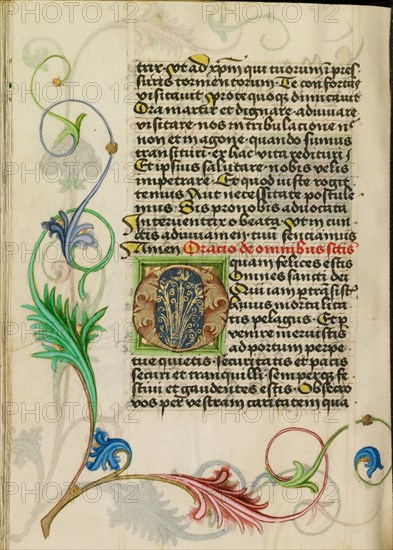 trix. Ut ad xp̄m qui tuorum pres
suris tormentorum. Te confortās
visitavit. Pro te quoqꝫ dimicavit
Ora martir et dignare adiuvare
visitare nos in tribulatione n̄
non et in agone quando sumus
transituri ex hac vita redituri
Et ipsius salutare nobis velis
impetrare. Et quod iuste rogi
temus Aut necessitate postule
mus. Sis pro nobis advocata
Interventrix o beata. Ut in cun
ctis adiuvam en tuū sentiamus
Amen Oratio de omnibus sctis
O quam felices estis
Omnes sancti dei
Qui iam p̄trāsistis
Huius mortalita
tis pelagus. Et p
venire meruistis
ad portum perpe
tue quietis securitatis et pacis
securi et tranquilli semperqꝫ fe
stivi et gaudentes estis. Obsecro
vos per vestram caritatem qua